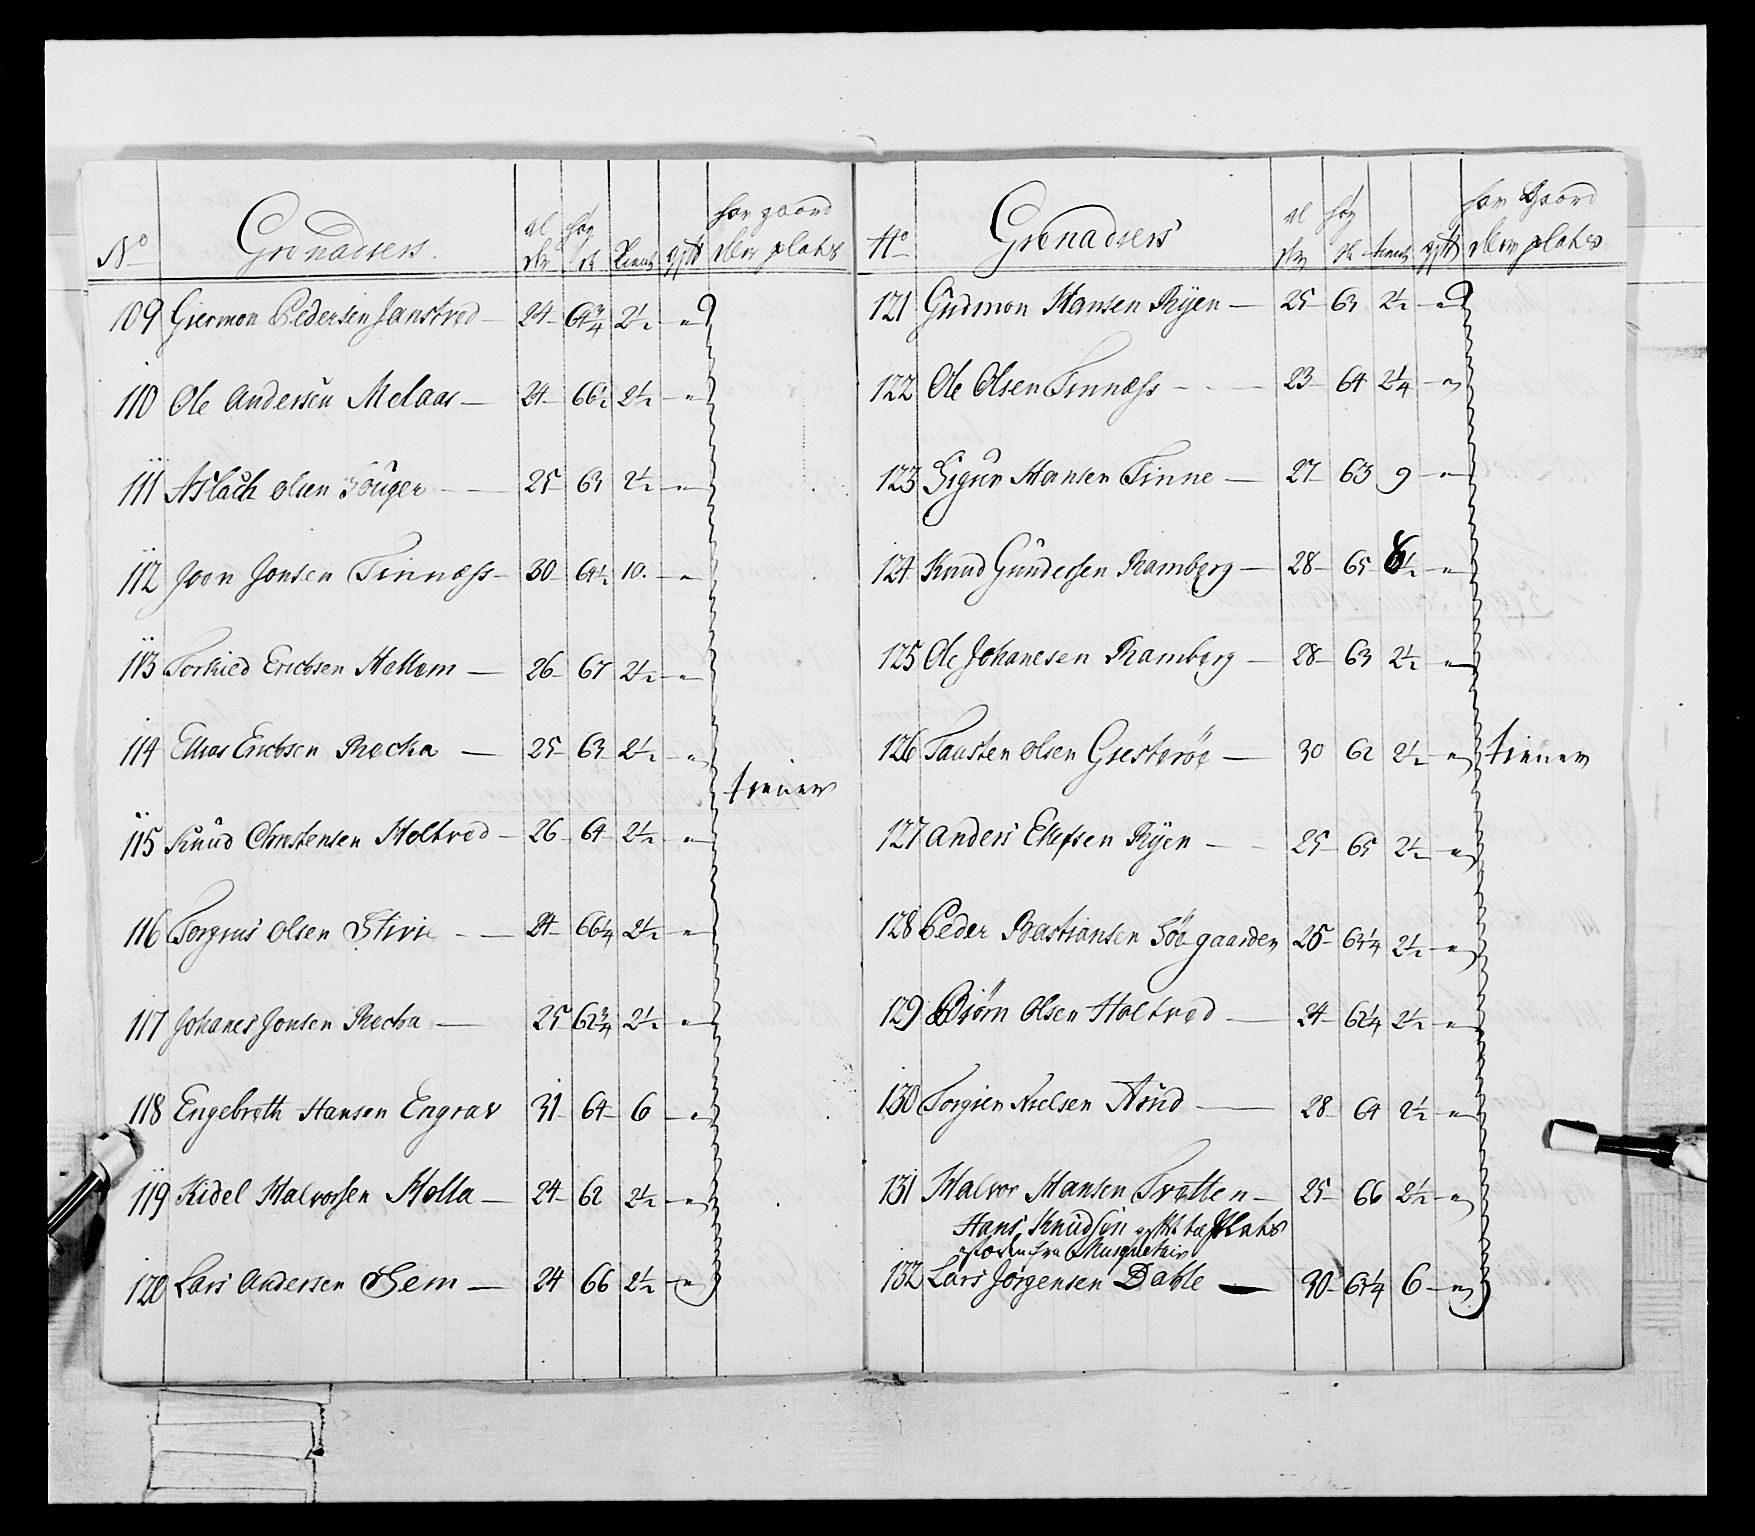 No Grenadeers. al der høy de tienst gift har gaard eller plads
109 Giermon Pedersen Janstred 24 64 3/4 2 1/2 "
110 Ole Andersen Melaas 24 66 1/2 2 1/2 "
111 Aslach Olsen 25 63 2 1/2 "
112 Joon Jonsen Finnæss 30 64 1/2 10. "
113 Torkild Erichsen Hellem 26 67 2 1/2 "
114 Elias Erichsen Recka 25 63 2 1/2 "
tiener
115 Knud Christensen Holtved 26 64 2 1/2 "
116 Torgrus Olsen Stivie 24 66 1/4 2 1/2 "
117 Johanes Jonsen Recka 25 62 3/4 2 1/2 "
118 Engebreth Hansen Engrav 31 64 6 "
119 Kidel Halvorsen Holla 24 62 2 1/2 "
120 Lars Andersen Sem 24 66 2 1/2 "
No Grenadeers al der høy de tienst gift har Gaard eller plads
121 Gudmon Hansen Ryen 25 63 2 1/2 "
122 Ole Olsen Finnæss 23 64 2 1/4 "
123 Sigur Hansen Finne 27 63 9 "
124 Knud Gundersen Ramberg 28 65 8 1/2 "
125 Ole Johanesen Ramberg 28 63 2 1/2 "
126 Tausten Olsen Giesterøe 30 62 2 1/2 " tiener
127 Anders Ellefsen Ryen 25 65 2 1/2 "
128 Peder Bastiansen Søegaarden 25 63 1/4 2 1/2 "
129 Biørn Olsen Holtved 24 62 1/4 2 1/2 "
130 Torgier Nielsen Arud 28 64 2 1/2 "
131 Halvor Hansen Tvetten 25 66 2 1/2 "
Hans Knudsen Plads
fra Musquetair
132 Lars Jørgensen Dahle 30 63 1/4 6 "